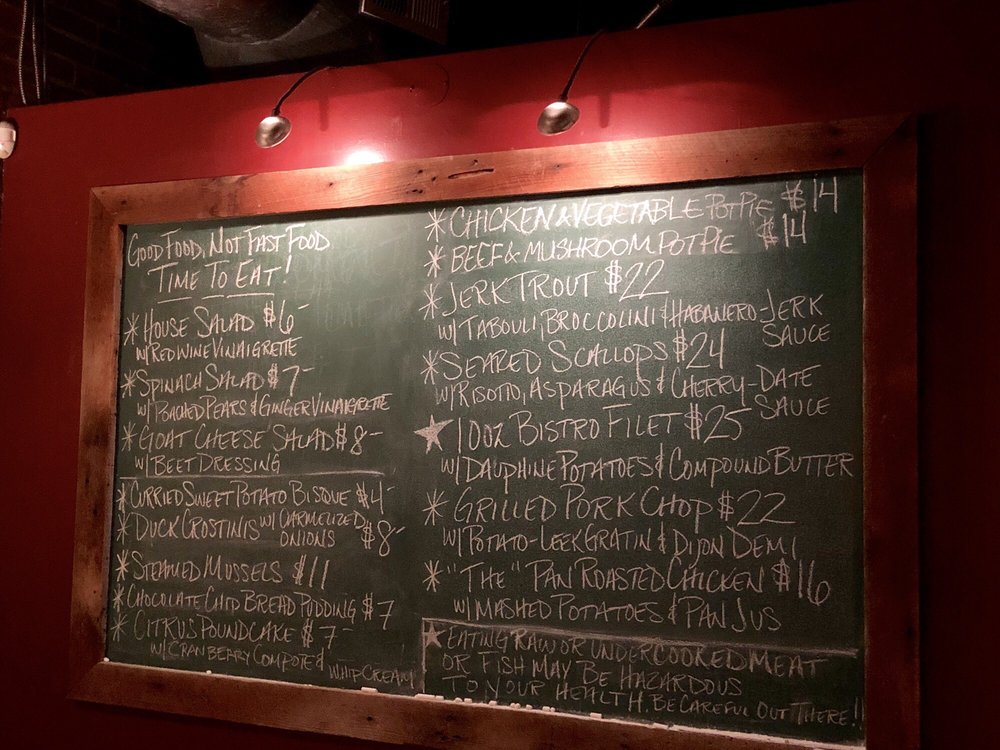 GOOD FOOD, NOT FAST FOOD
TIME TO EAT!
* HOUSE SALAD $6-
W/ RED WINE VINAIGRETTE
* SPINACH SALAD $7-
W/ POACHED PEARS & GINGER VINAIGRETTE
* GOAT CHEESE SALAD $8-
W/ BEET DRESSING
* CURRIED SWEET POTATO BISQUE $4-
* DUCK CROSTINIS W/ CARMELIZED ONIONS $8-
* STEAMED MUSSELS $11
* CHOCOLATE CHIP BREAD PUDDING $7
* CITRUS POUNDCAKE $7-
W/ CRANBERRY COMPOTE & WHIP CREAM
* CHICKEN & VEGETABLE POT PIE $14
* BEEF & MUSHROOM POT PIE $14
* JERK TROUT $22
W/ TABOULI, BROCCOLINI & HABANERO-JERK
SAUCE
* SEARED SCALLOPS $24
W/ RISOTTO, ASPARAGUS & CHERRY-DATE
SAUCE
★ 10OZ BISTRO FILET $25
W/ DAUPHINE POTATOES & COMPOUND BUTTER
* GRILLED PORK CHOP $22
W/ POTATO-LEEK GRATIN & DIJON DEMI
* "THE" PAN ROASTED CHICKEN $16
W/ MASHED POTATOES & PAN JUS
★ EATING RAW OR UNDERCOOKED MEAT
OR FISH MAY BE HAZARDOUS
TO YOUR HEALTH. BE CAREFUL OUT THERE!